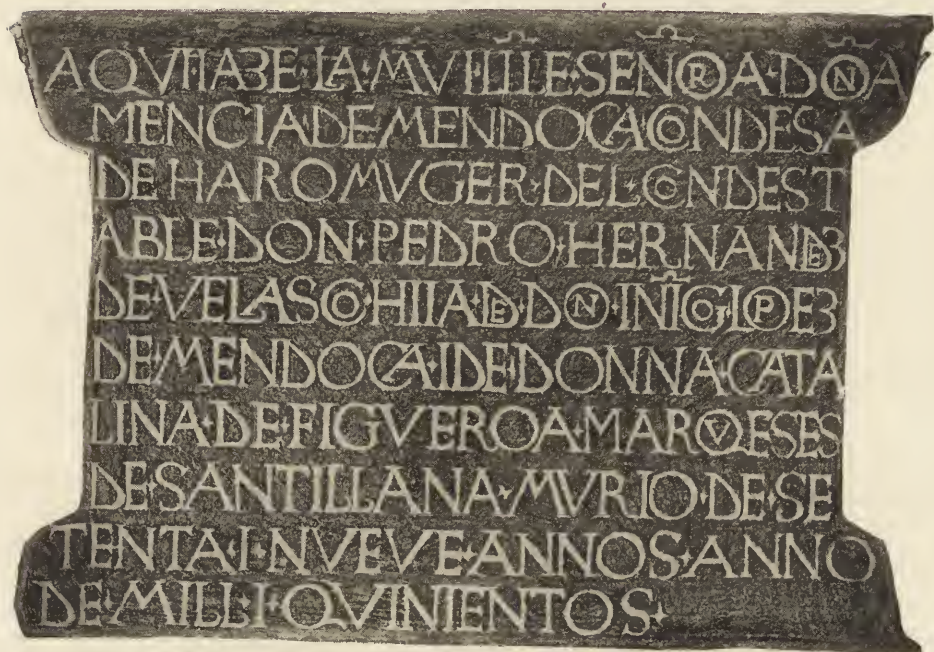 AQVI IAƷE·LA·MVI·ILLE·SENORA·DONA
MENCIA·DE·MENDOCA·CONDESA
DE·HARO·MVGER·DEL·CONDEST
ABLE·DON·PEDRO·HERNANDEƷ
DE·VELASCO·HIIA·DE·DON·INIGO·LOPEƷ
DE·MENDOCA·I·DE·DONNA·CATA
LINA·DE·FIGVEROA·MARQVESES
DE·SANTILLANA·MVRIO·DE·SE
TENTA·I·NVEVE·ANNOS·ANNO
DE·MILL·I·QVINIENTOS·